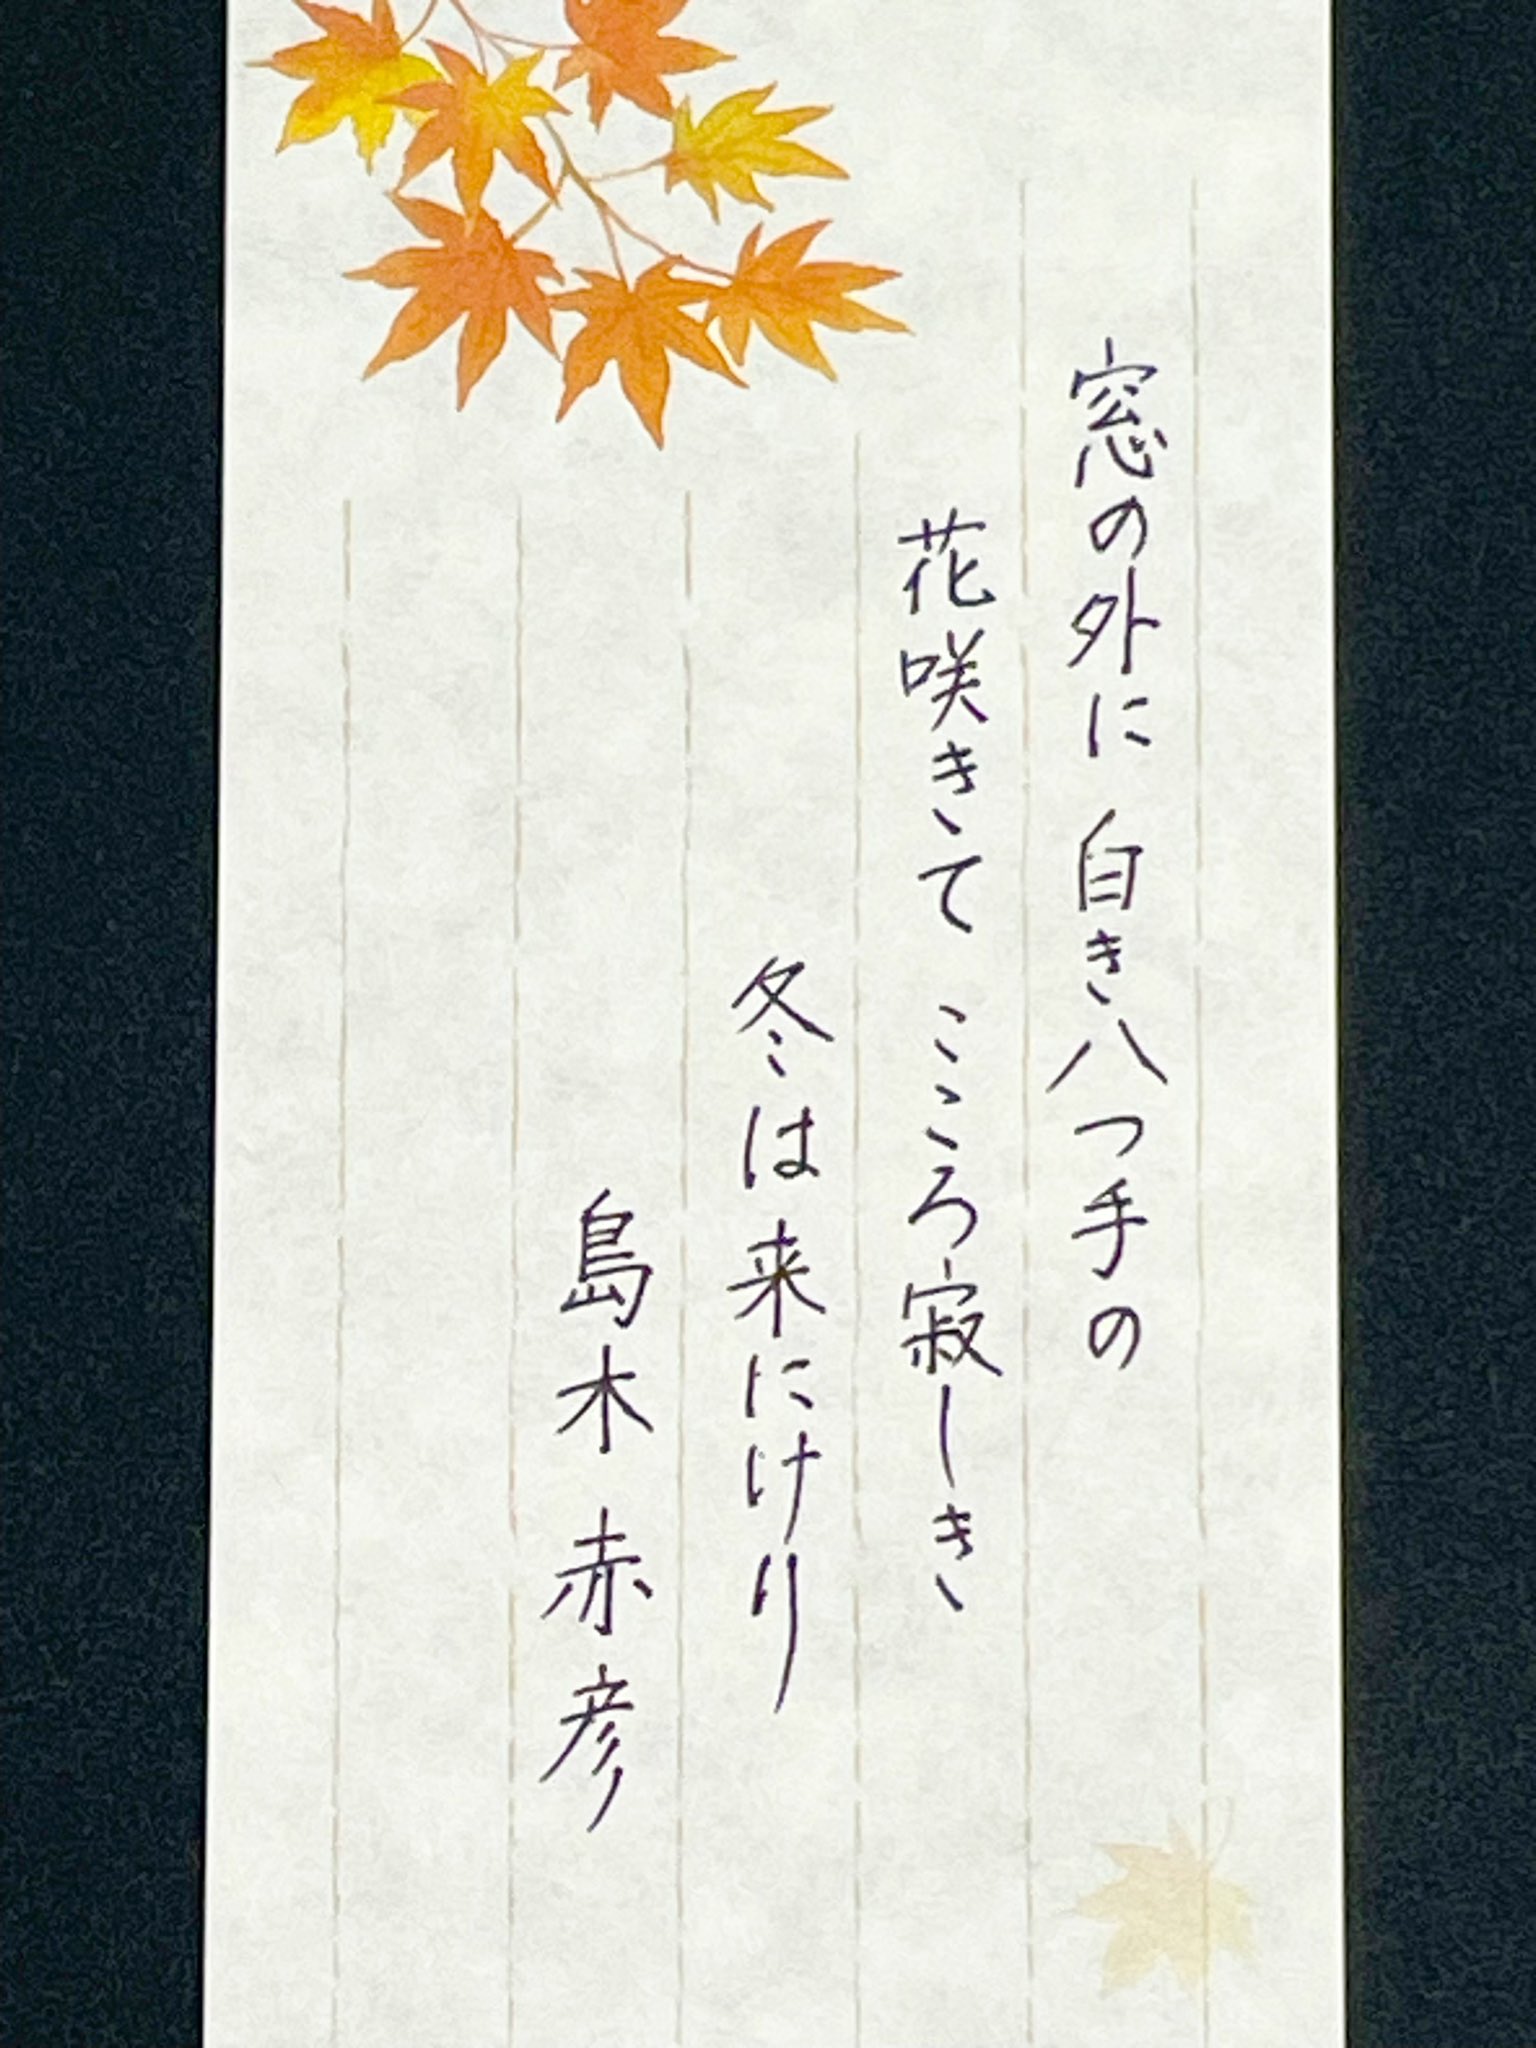 窓の外に 白き八つ手の
花咲きて こころ寂しき
冬は来にけり
島木赤彦